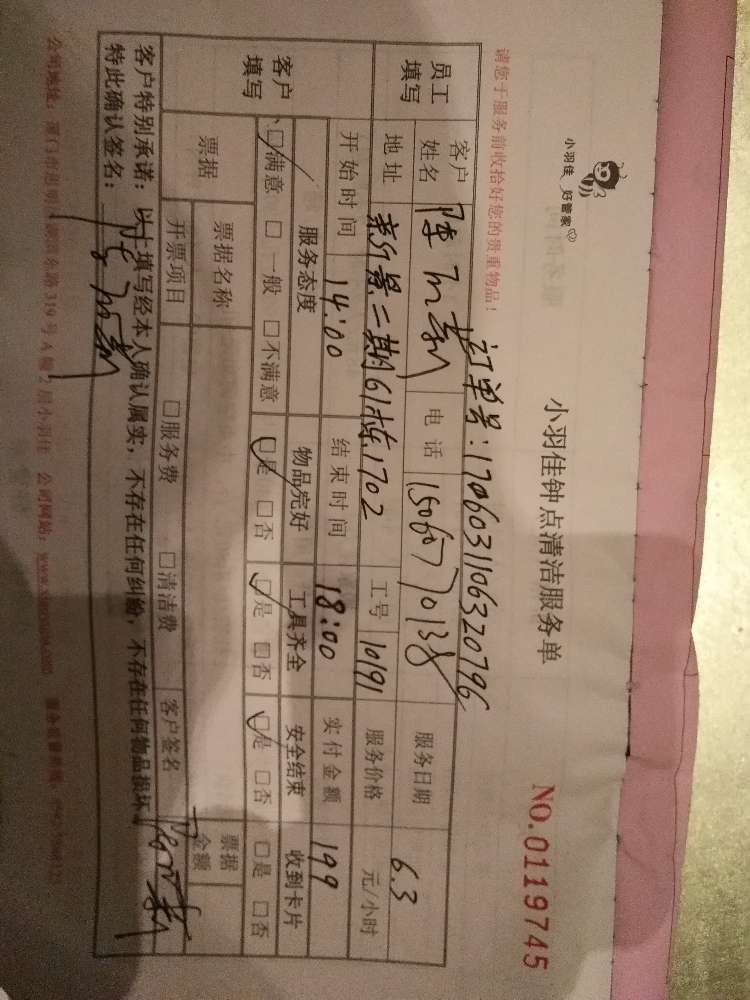 小羽佳 好管家
小羽佳钟点清洁服务单
NO.0119745
请您于服务前收拾好您的贵重物品！
订单号：1706031106320796
员工填写 客户姓名 陈 电话 1506770138 服务日期 6.3
地址 新景二期61栋1702 工号 10191 服务价格 元/小时
客户填写 开始时间 14:00 结束时间 18:00 实付金额 199
服务态度 物品完好 工具齐全 安全结束 收到卡片
☑满意 □一般 □不满意 ☑是 □否 ☑是 □否 ☑是 □否 □是 □否
票据 票据名称 票据金额
开票项目 □服务费 □清洁费 客户签名
客户特别承诺：以上填写经本人确认属实，不存在任何纠纷，不存在任何物品损坏。
特此确认签名：
公司地址：厦门市思明区 路319号A幢2层小羽佳 公司网站：